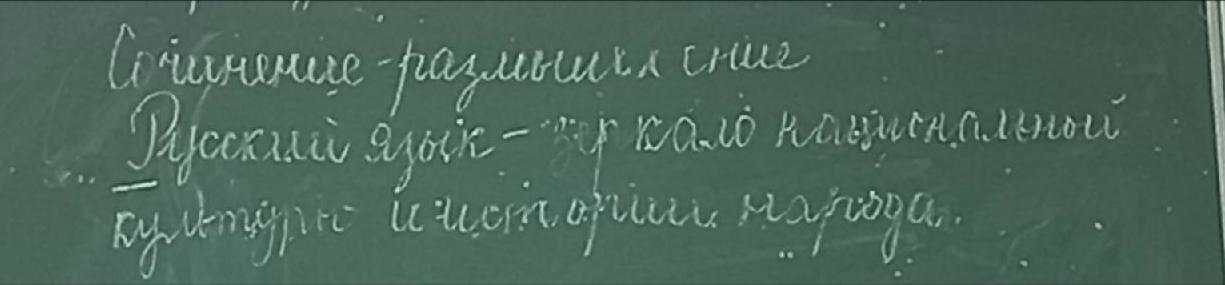 Сочинение-размышление
Русский язык - зеркало национальной
культуры и истории народа.